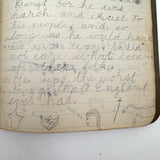 King; for he was
harsh and cruel to
his people, and so
long as he could have
his own way he did
not care what became
of other folks.
He was the worst
King that England
ever had.